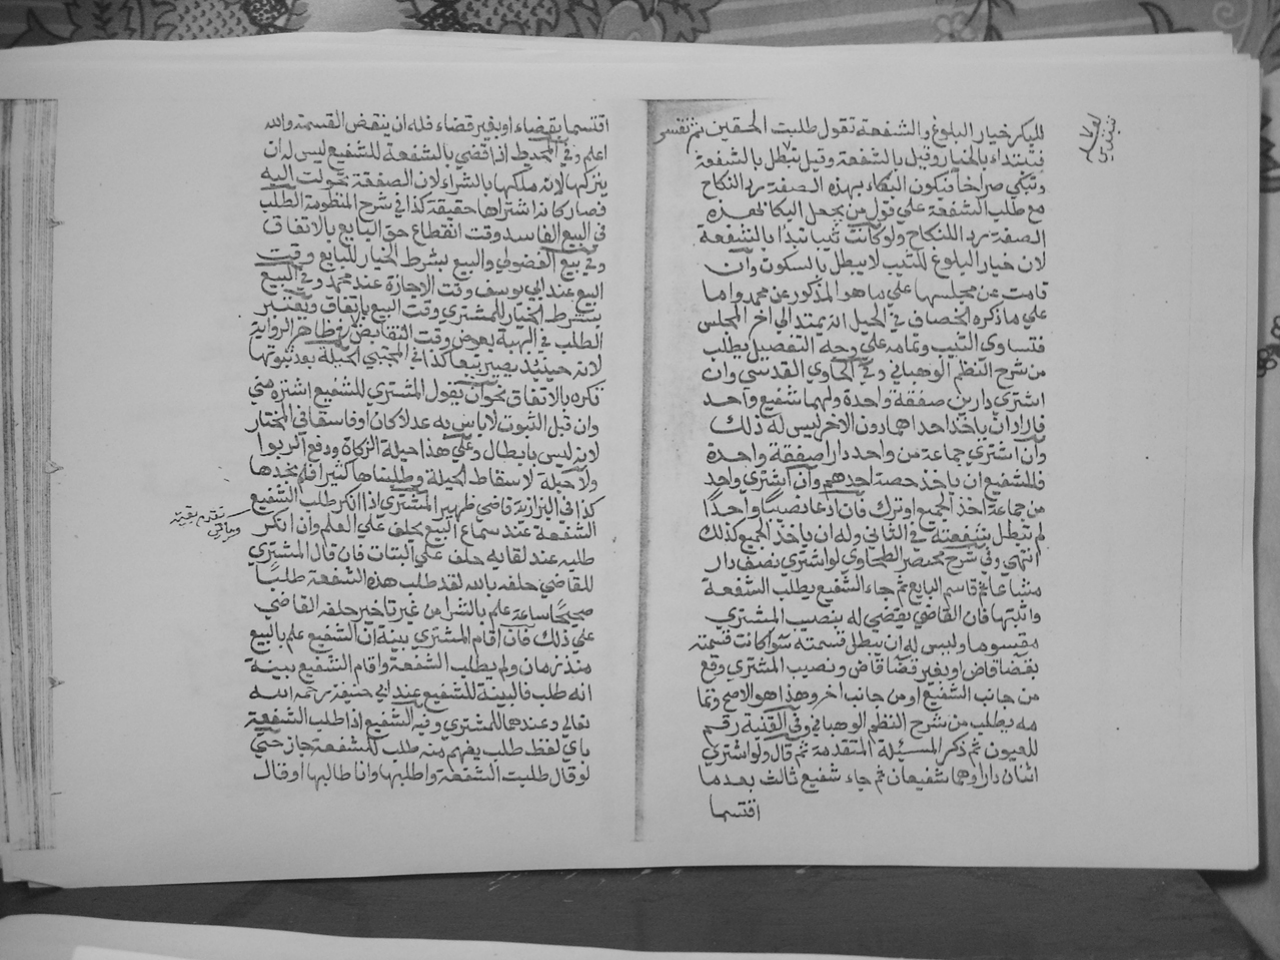 للبكر خيار البلوغ والشفعة تقول طلبت الحقين ثم تفسر
فتبتداء بالخيار وقيل بالشفعة وقيل تبطل بالشفعة
وتبكي صراخا فيكون البكاء بهذه الصفة رد النكاح
مع طلب الشفعة علي قول من يجعل البكا لهذه
الصفة رد اللنكاح ولو كانت ثيبا تبدا بالشفعة
لان خيار البلوغ للثيب لا يبطل بالسكوت وان
قامت عن مجلسها علي ما هو المذكور عن محمد واما
علي ما ذكره الخصاف في الحيل انه يمتد الي اخر المجلس
فتساوى الثيب وتمامه علي وجه التفصيل يطلب
من شرح النظم الوهباني وفي الحاوي القدسي وان
اشتري دارين صفقة واحدة ولهما شفيع واحد
فاراد ان ياخذ احداهما دون الاخر ليس له ذلك
وان اشتري جماعة من واحد دارا صفقة واحدة
فللشفيع ان ياخذ حصة احدهم وان اشتري واحد
من جماعة اخذ الجميع او ترك فان ادعا نصيبا واحدا
لم تبطل شفعته في الثاني وله ان ياخذ الجميع كذلك
انتهي وفي شرح مختصر الطحاوي لو اشتري نصف دار
مشاعا ثم قاسم البايع ثم جاء الشفيع يطلب الشفعة
واثبتها فان القاضي يقضي له بنصيب المشتري
مقسوما وليس له ان يبطل قسمته سوا كانت قسمته
بقضا قاض او بغير قضا قاض ونصيب المشتري وقع
من جانب الشفيع او من جانب اخر وهذا هو الاصح وتما
مه يطلب من شرح النظم الوهباني وفي القنية رقم
للعيون ثم ذكر المسئلة المتقدمة ثم قال ولو اشتري
اثنان دارا وهما شفيعان ثم جاء شفيع ثالث بعد ما
اقتسما
اقتسما بقضاء او بغير قضاء فله ان ينقض القسمة والله
اعلم وفي المحيط اذا قضي بالشفعة للشفيع ليس له ان
يتركها لانه ملكها بالشراء لان الصفقة تحولت اليه
فصار كانه اشتراها حقيقة كذا في شرح المنظومة الطلب
في البيع الفاسد وقت انقطاع حق البايع بالاتفاق
وفي بيع الفضولي والبيع بشرط الخيار للبايع وقت
البيع عند ابي يوسف وقت الاجازة عند محمد وفي البيع
بشرط الخيار للمشتري وقت البيع باتفاق ويعتبر
الطلب في الهبة بعوض وقت التقابض في ظاهر الرواية
لانه حينئذ يصير بيعا كذا في المجتبي الحيلة بعد ثبوتها
تكره بالاتفاق نحو ان يقول المشتري للشفيع اشتره مني
وان قبل الثبوت لا باس به عدلا كان او فاسقا في المختار
لانه ليس بابطال وعلي هذا حيلة الزكاة ودفع الربوا
ولا حيلة لاسقاط الحيلة وطلبناها كثيرا فلم نجدها
كذا في البزازية قاضي ظهير المشتري اذا انكر طلب الشفيع
الشفعة عند سماع البيع يحلف علي العلم وان انكر
طلبه عند لقايه حلف علي البتات فان قال المشتري
للقاضي حلفه بالله لقد طلب هذه الشفعة طلبا
صحيحا ساعة علم بالشرا من غير تاخير حلفه القاضي
علي ذلك فان اقام المشتري بينة ان الشفيع علم بالبيع
منذ زمان ولم يطلب الشفعة واقام الشفيع بينة
انه طلب فالبينة للشفيع عند ابي حنيفة رحمه الله
تعالي وعندهما للمشتري وفيه الشفيع اذا طلب الشفعة
باي لفظ طلب يفهم منه طلب للشفعة جاز حتي
لو قال طلبت الشفعة واطلبها وانا طالبها او قال